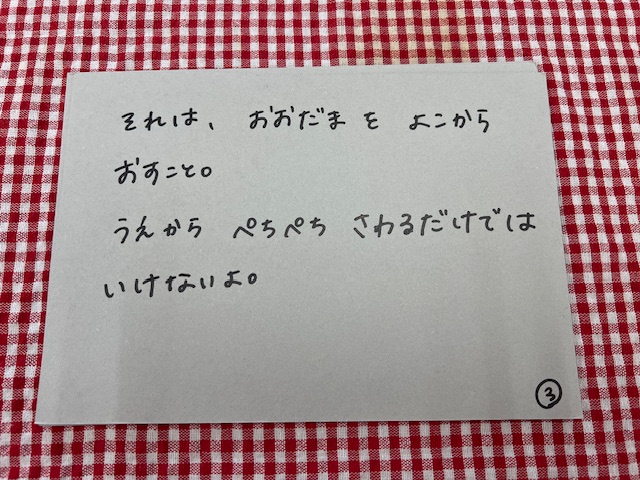 それは、 おおだま を よこから
おすこと。
うえから ぺちぺち さわるだけでは
いけないよ。
③